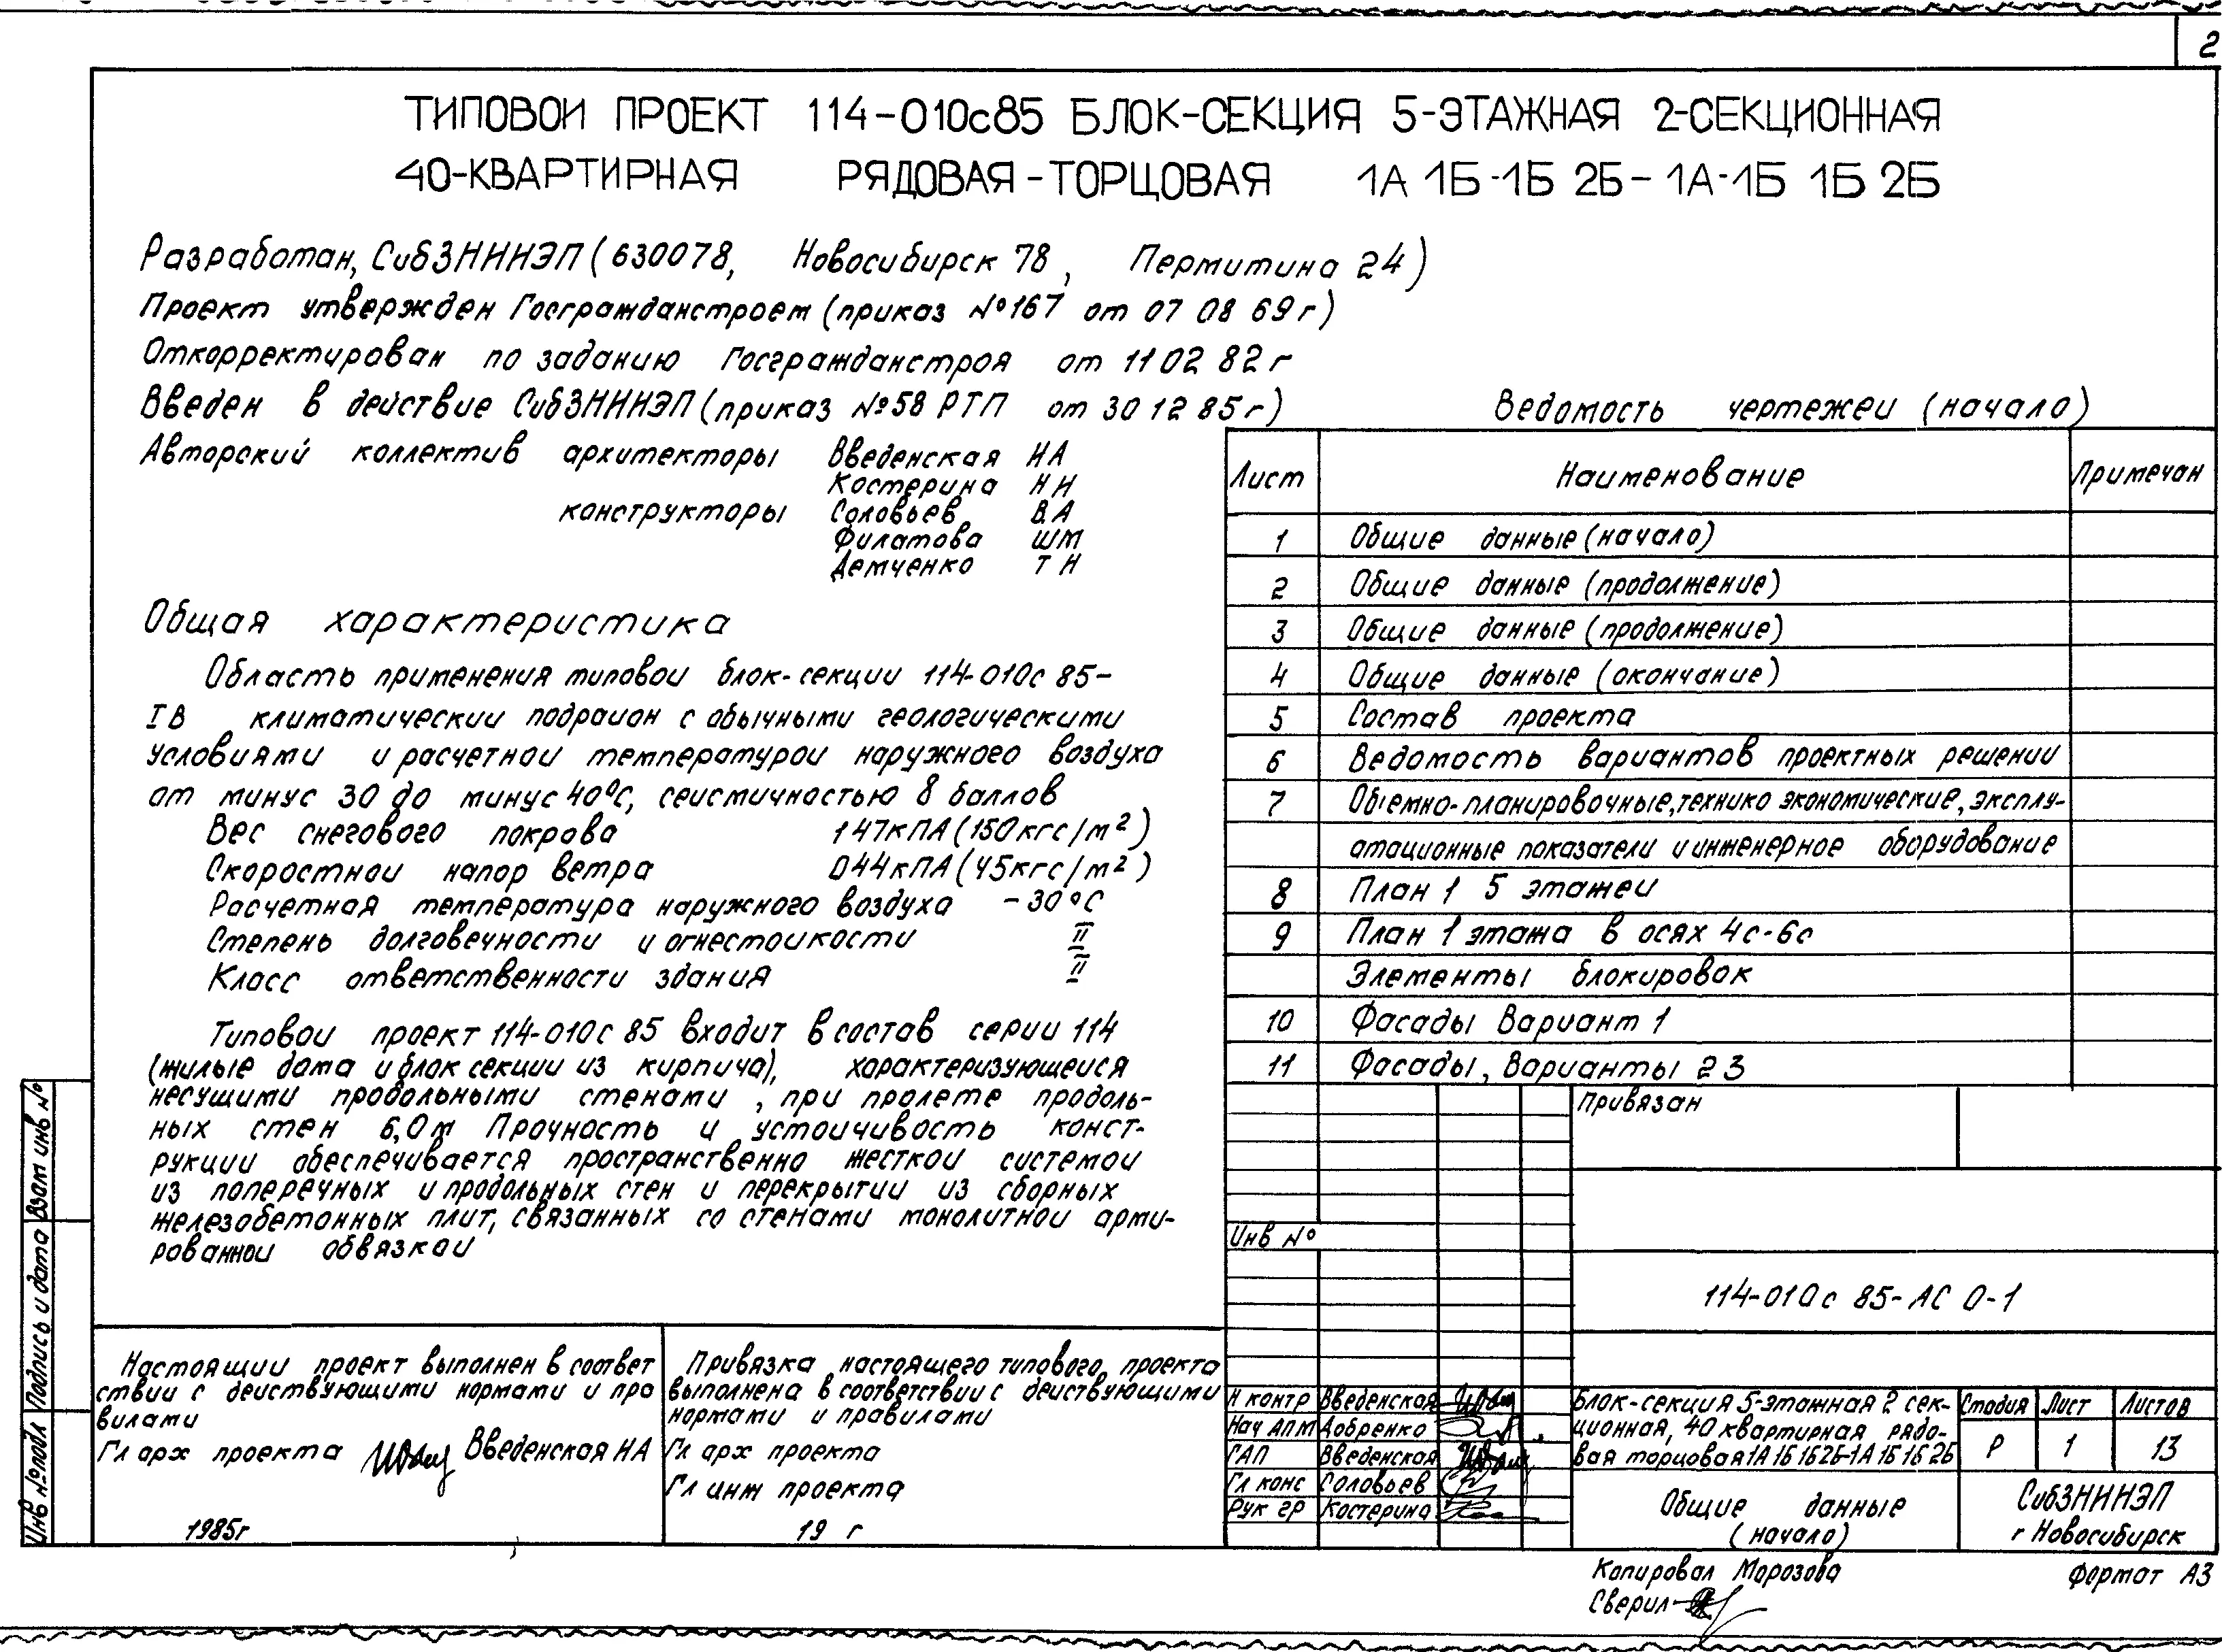 2
ТИПОВОИ ПРОЕКТ 114-010с85 БЛОК-СЕКЦИЯ 5-ЭТАЖНАЯ 2-СЕКЦИОННАЯ
40-КВАРТИРНАЯ РЯДОВАЯ-ТОРЦОВАЯ 1А 1Б-1Б 2Б-1А-1Б 1Б 2Б
Разработан, СибЗНИИЭП (630078, Новосибирск 78, Пермитина 24)
Проект утвержден Госгражданстроем (приказ №167 от 07 08 69г)
Откорректирован по заданию Госгражданстроя от 11 02 82 г
Введен в действие СибЗНИИЭП (приказ №58 РТП от 30 12 85г)
Авторский коллектив архитекторы Введенская НА
Костерина НИ
конструкторы Соловьев ВА
Филатова ШМ
Демченко ТН
Общая характеристика
Область применения типовои блок-секции 114-010с 85-
IВ климатическии подраион с обычными геологическими
условиями и расчетнои температурои наружного воздуха
от минус 30 до минус 40°С, сеисмичностью 8 баллов
Вес снегового покрова 147кПА (150кгс/м²)
Скоростнои напор ветра 044кПА (45кгс/м²)
Расчетная температура наружного воздуха -30°С
Степень долговечности и огнестоикости II
Класс ответственности здания II
Типовои проект 114-010с 85 входит в состав серии 114
(жилые дома и блок секции из кирпича), характеризующеися
несущими продольными стенами, при пролете продоль-
ных стен 6,0м Прочность и устоичивость конст-
рукции обеспечивается пространственно жесткои системои
из поперечных и продольных стен и перекрытии из сборных
железобетонных плит, связанных со стенами монолитнои арми-
рованнои обвязкои
Ведомость чертежеи (начало)
Лист Наименование Примечан
1 Общие данные (начало)
2 Общие данные (продолжение)
3 Общие данные (продолжение)
4 Общие данные (окончание)
5 Состав проекта
6 Ведомость вариантов проектных решении
7 Объемно-планировочные, технико экономические, эксплу-
атационные показатели и инженерное оборудование
8 План 1 5 этажеи
9 План 1 этажа в осях 4с-6с
Элементы блокировок
10 Фасады Вариант 1
11 Фасады, Варианты 2 3
Привязан
Инв №
114-010с 85-АС 0-1
Н контр Введенская
Нач АПМ Добренко
ГАП Введенская
Гл конс Соловьев
Рук гр Костерина
Блок-секция 5-этажная 2 сек-
ционная, 40 квартирная рядо-
вая торцовая 1А 1Б 1Б2Б-1А 1Б 1Б 2Б
Стадия Лист Листов
Р 1 13
Общие данные
(начало)
СибЗНИИЭП
г Новосибирск
Настоящии проект выполнен в соответ
ствии с деиствующими нормами и пра
вилами
Гл арх проекта Введенская НА
1985г
Привязка настоящего типового проекта
выполнена в соответствии с деиствующими
нормами и правилами
Гл арх проекта
Гл инж проекта
19 г
Инв №подл Подпись и дата Взам инв №
Копировал Морозова
Формат А3
Сверил